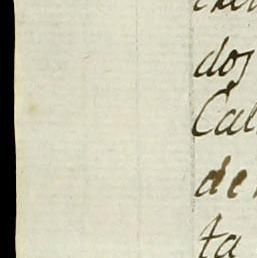 dos
Cal
de
ta